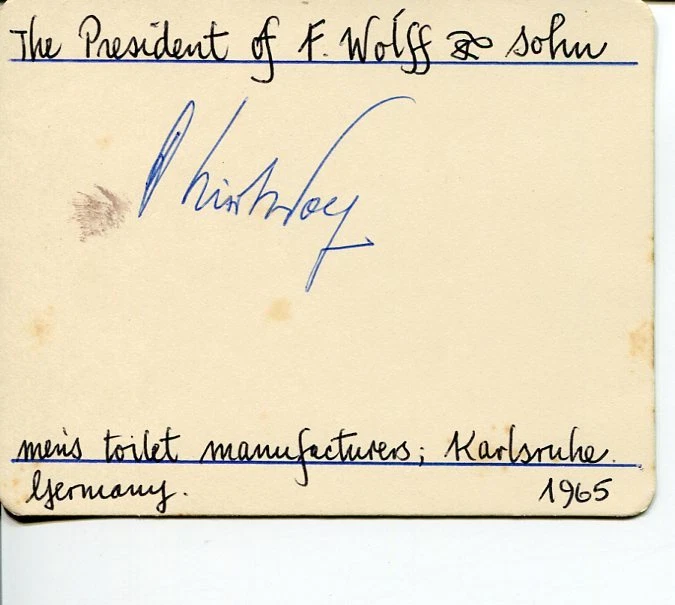 The President of F. Wolff & Sohn
men's toilet manufacturers; Karlsruhe.
Germany. 1965